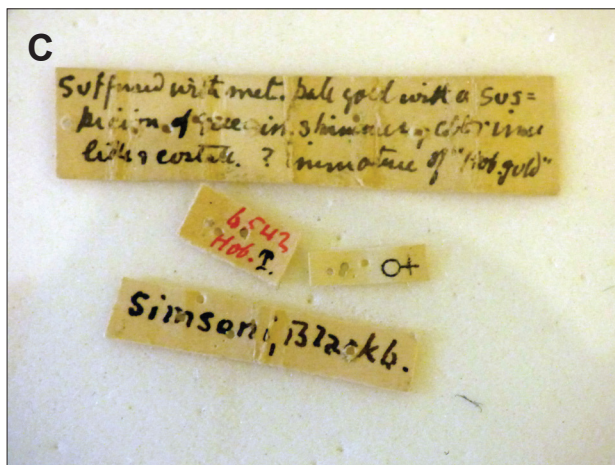 C
Suffused with met. pale gold with a sus=
picion of green in
little costate. ? immature of "Hob. gold"
6542
Hob. T.
♀
Simsoni, Blackb.